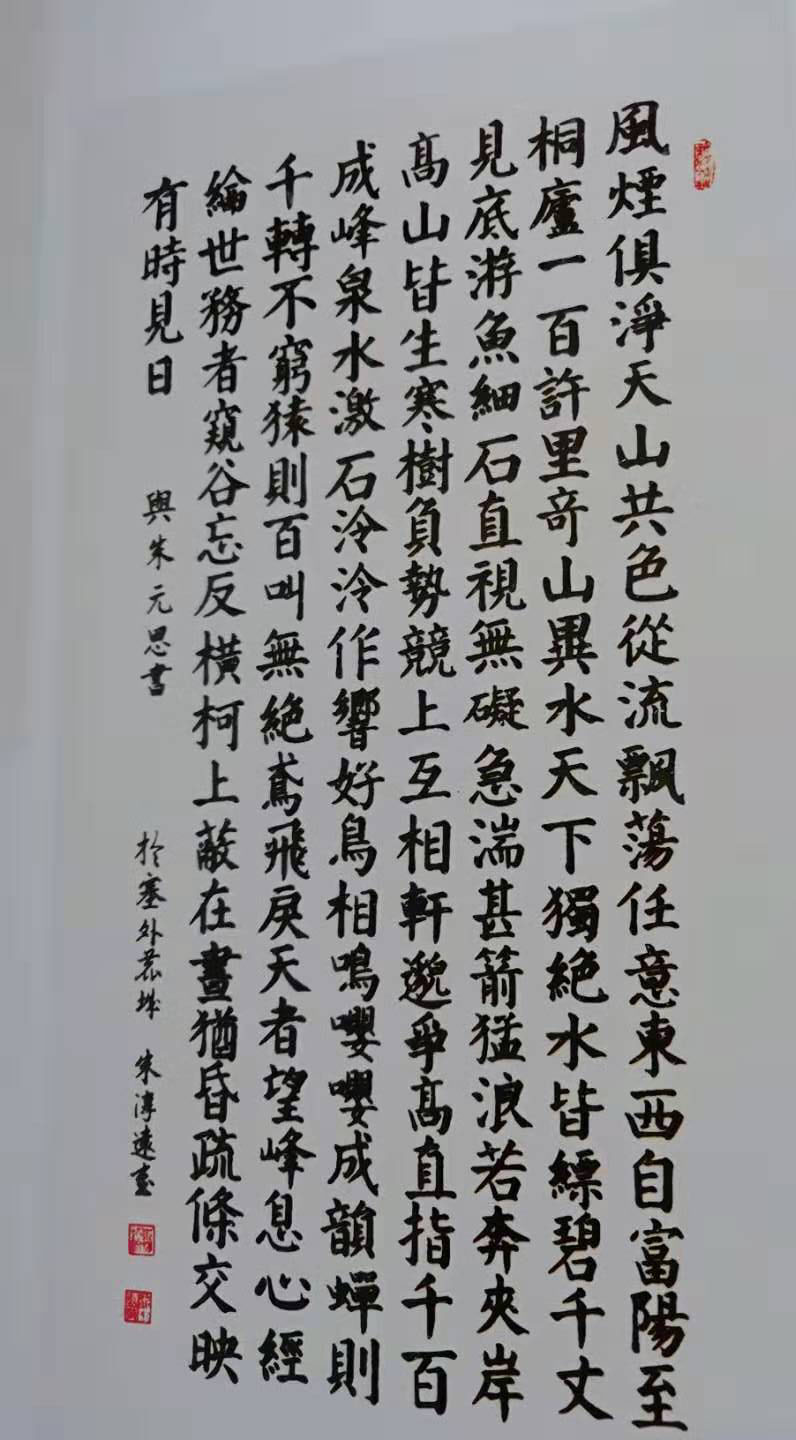 風煙俱淨天山共色從流飄蕩任意東西自富陽至
桐廬一百許里奇山異水天下獨絶水皆縹碧千丈
見底游魚細石直視無礙急湍甚箭猛浪若奔夾岸
高山皆生寒樹負勢競上互相軒邈爭高直指千百
成峰泉水激石泠泠作響好鳥相鳴嚶嚶成韻蟬則
千轉不窮猿則百叫無絶鳶飛戾天者望峰息心經
綸世務者窺谷忘反橫柯上蔽在晝猶昏疏條交映
有時見日
與朱元思書
於塞外 城 朱淳遠書